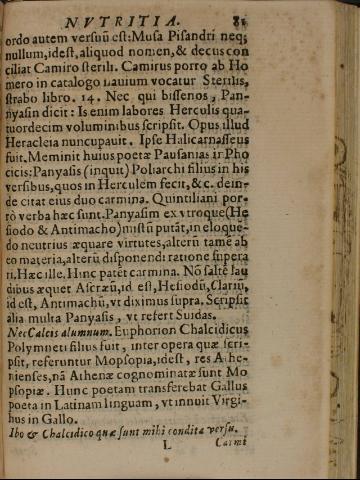 NVTRITIA. 81
ordo autem versuū est: Musa Pisandri neq;
nullum, idest, aliquod nomen, & decus con
ciliat Camiro sterili. Camirus porro ab Ho
mero in catalogo nauium vocatur Sterilis,
strabo libro. 14. Nec qui bissenos, Pan-
nyasin dicit: Is enim labores Herculis qua-
tuordecim voluminibus scripsit. Opus illud
Heracleia nuncupauit. Ipse Halicarnasseus
fuit. Meminit huius poetæ Pausanias in Pho
cicis: Panyasis (inquit) Poliarchi filius in his
versibus, quos in Herculem fecit, &c. dein-
de citat eius duo carmina. Quintiliani por-
rò verba hæc sunt. Panyasim ex vtroque (He
siodo & Antimacho) mistū putāt, in eloque-
do neutrius æquare virtutes, alterū tamē ab
eo materia, alterū disponendi ratione supera
ri. Hæc ille. Hinc patēt carmina. Nō saltē lau
dibus æquet Ascræū, id est, Hesiodū, Clariū,
id est, Antimachū, vt diximus supra. Scripsit
alia multa Panyasis, vt refert Suidas.
Nec Calcis alumnum. Euphorion Chalcidicus
Polymneti filius fuit, inter opera quæ scri-
psit, referuntur Mopsopia, idest, res Athe-
nienses, nā Athenæ cognominatæ sunt Mo
psopiæ. Hunc poetam transferebat Gallus
poeta in Latinam linguam, vt innuit Virgi-
lius in Gallo.
Ibo & Chalcidico quæ sunt mihi condita versu.
L Carmi